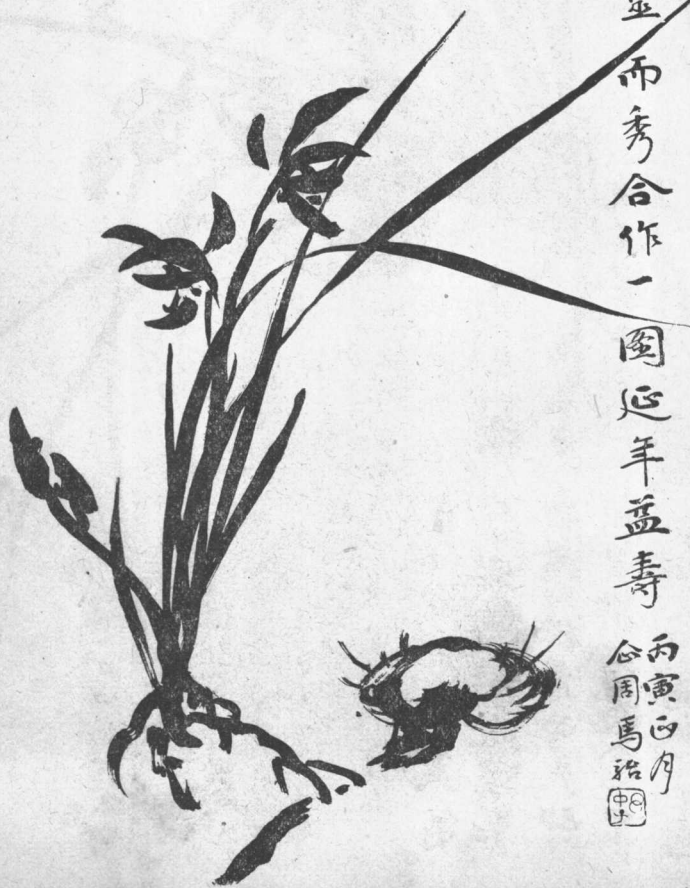 而秀合作一圖延年益壽
丙寅正月
企周馬駘